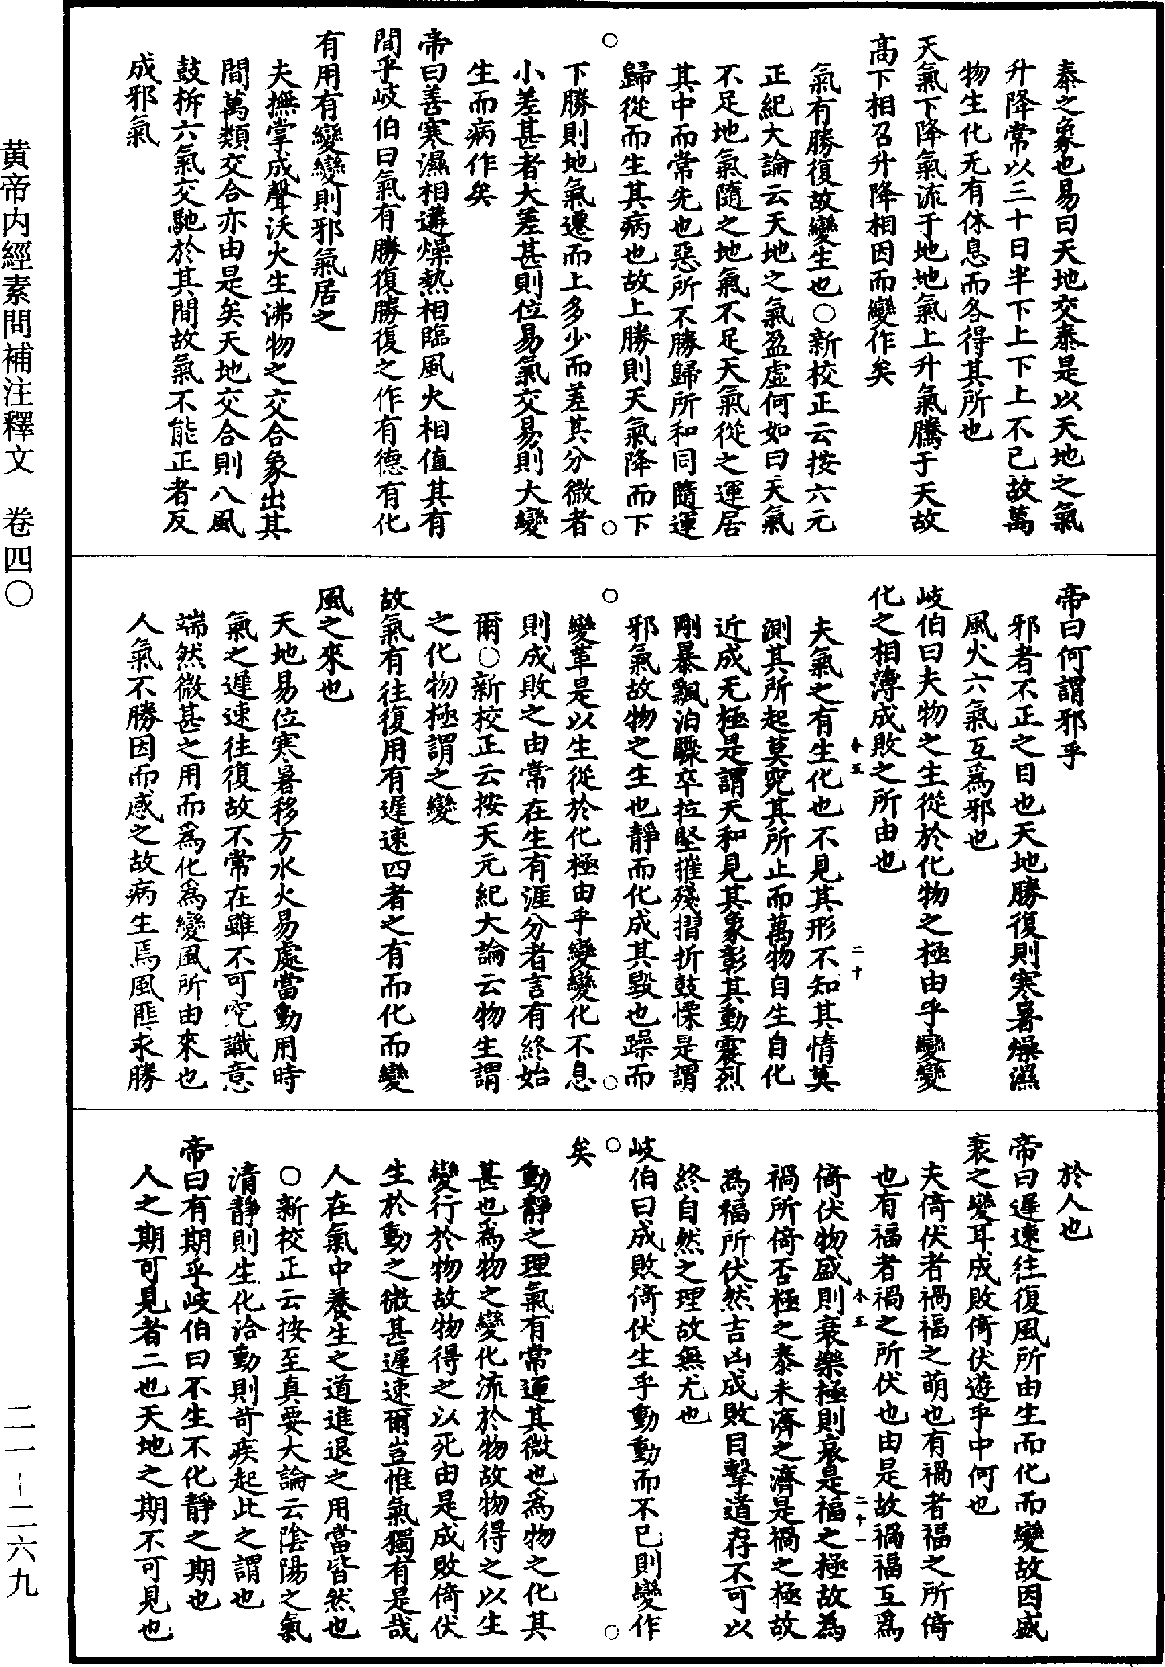 泰之象也易曰天地交泰是以天地之氣
升降常以三十日半下上下上不已故萬
物生化无有休息而各得其所也
天氣下降氣流于地地氣上升氣騰于天故
高下相召升降相因而變作矣
氣有勝復故變生也○新校正云按六元
正紀大論云天地之氣盈虛何如曰天氣
不足地氣隨之地氣不足天氣從之運居
其中而常先也惡所不勝歸所和同隨運
歸從而生其病也故上勝則天氣降而下
下勝則地氣遷而上多少而差其分微者
小差甚者大差甚則位易氣交易則大變
生而病作矣
帝曰善寒濕相遘燥熱相臨風火相值其有
間乎岐伯曰氣有勝復勝復之作有德有化
有用有變變則邪氣居之
夫撫掌成聲沃火生沸物之交合象出其
間萬類交合亦由是矣天地交合則八風
鼓拆六氣交馳於其間故氣不能正者反
成邪氣
帝曰何謂邪乎
邪者不正之目也天地勝復則寒暑燥濕
風火六氣互爲邪也
岐伯曰夫物之生從於化物之極由乎變變
化之相薄成敗之所由也
夫氣之有生化也不見其形不知其情莫
測其所起莫究其所止而萬物自生自化
近成无極是謂天和見其象彰其動震烈
剛暴飄泊驟卒拉堅摧殘摺折鼓慄是謂
邪氣故物之生也靜而化成其毀也躁而
變革是以生從於化極由乎變變化不息
則成敗之由常在生有涯分者言有終始
爾○新校正云按天元紀大論云物生謂
之化物極謂之變
故氣有往復用有遲速四者之有而化而變
風之來也
天地易位寒暑移方水火易處當動用時
氣之遲速往復故不常在雖不可究識意
端然微甚之用而爲化爲變風所由來也
人氣不勝因而感之故病生焉風匪求勝
於人也
帝曰遲速往復風所由生而化而變故因盛
衰之變耳成敗倚伏遊乎中何也
夫倚伏者禍福之萌也有禍者福之所倚
也有福者禍之所伏也由是故禍福互爲
倚伏物盛則衰樂極則哀是福之極故為
禍所倚否極之泰未濟之濟是禍之極故
為福所伏然吉凶成敗目擊道存不可以
終自然之理故無尤也
岐伯曰成敗倚伏生乎動動而不已則變作
矣
動靜之理氣有常運其微也爲物之化其
甚也爲物之變化流於物故物得之以生
變行於物故物得之以死由是成敗倚伏
生於動之微甚遲速爾豈惟氣獨有是哉
人在氣中養生之道進退之用當皆然也
○新校正云按至真要大論云陰陽之氣
清靜則生化治動則苛疾起此之謂也
帝曰有期乎岐伯曰不生不化靜之期也
人之期可見者二也天地之期不可見也
黃帝內經素問補注釋文　卷四○
二一－二六九